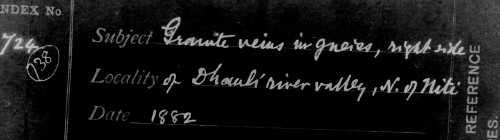 INDEX No.
724
738
Subject Granite veins in gneiss, right side
Locality of Dhauli river valley, N. of Niti
Date 1882
REFERENCE
ES.